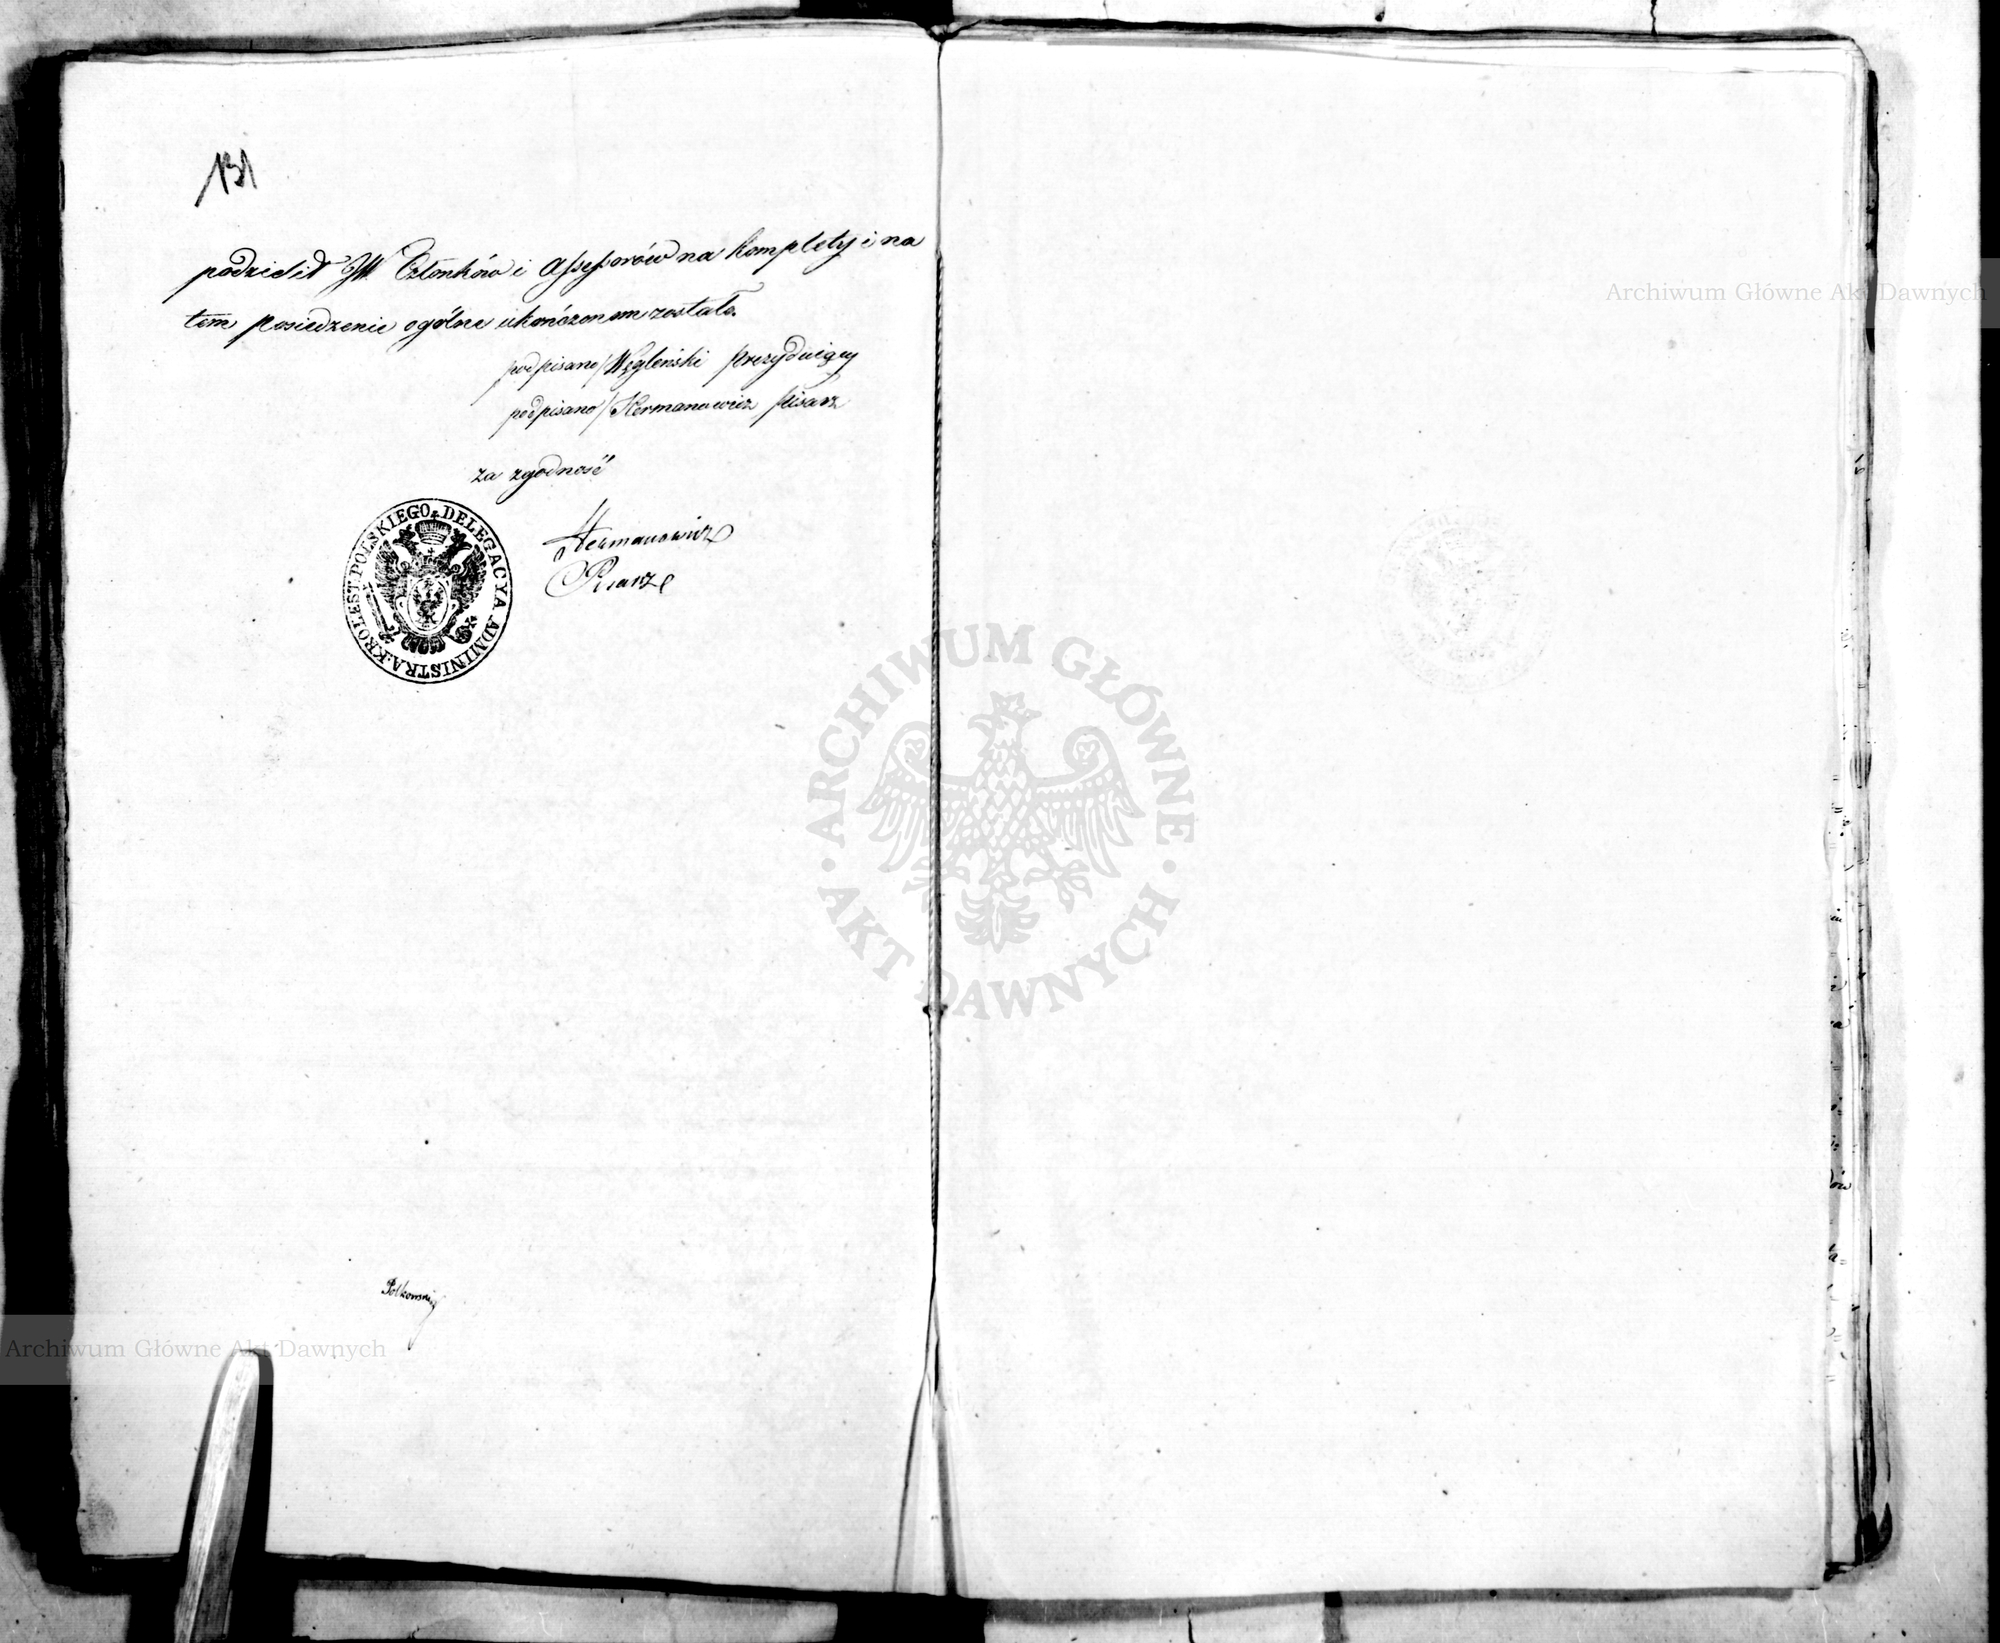 131
podzielił JW. Członków i Assessorów na komplety i na
tem posiedzenie ogólne ukończonem zostało.
podpisano/ Węgleński Prezydujący
podpisano/ Hermanowicz Pisarz
za zgodność
Hermanowicz
Pisarz
KROLEST. POLSKIEGO. DELEGACYA ADMINISTRA.
Polkowski
Archiwum Główne Akt Dawnych
ARCHIWUM GŁÓWNE · AKT DAWNYCH ·
Archiwum Główne Akt Dawnych